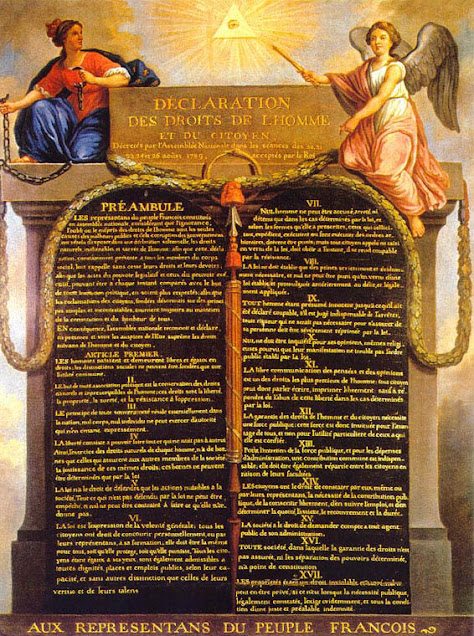 DÉCLARATION
DES DROITS DE L'HOMME
ET DU CITOYEN,
Décrétés par l'Assemblée Nationale dans les séances des 20, 21
23, 24 et 26 août 1789, acceptés par le Roi
PRÉAMBULE
LES représentans du peuple Francois, constitués
en assemblée nationale, considérant que l'ignorance,
l'oubli ou le mépris des droits de l'homme sont les seules
causes des malheurs publics et de la corruption des gouvernemens
ont résolu d'exposer dans une déclaration solemnelle, les droits
naturels, inaliénables et sacrés de l'homme; afin que cette décla-
ration, constamment présente à tous les membres du corps
social, leur rappelle sans cesse leurs droits et leurs devoirs;
afin que les actes du pouvoir législatif et ceux du pouvoir exé-
cutif, pouvant être à chaque instant comparés avec le but
de toute institution politique, en soient plus respectés; afin que
les réclamations des citoyens, fondées désormais sur des principes
simples et incontestables, tournent toujours au maintien
de la constitution et du bonheur de tous.
EN conséquence, l'assemblée nationale reconnoit et déclare,
en présence et sous les auspices de l'Etre suprême les droits
suivans de l'homme et du citoyen.
ARTICLE PREMIER.
LES hommes naissent et demeurent libres et égaux en
droits; les distinctions sociales ne peuvent être fondées que sur
l'utilité commune.
II.
LE but de toute association politique est la conservation des droits
naturels et imprescriptibles de l'homme; ces droits sont la liberté,
la propriété, la sureté, et la résistance à l'oppression.
III.
LE principe de toute souveraineté réside essentiellement dans
la nation, nul corps, nul individu ne peut exercer d'autorité
qui n'en émane expressément.
IV.
LA liberté consiste à pouvoir faire tout ce qui ne nuit pas à autrui
Ainsi, l'exercice des droits naturels de chaque homme, n'a de bor-
nes que celles qui assurent aux autres membres de la société
la jouissance de ces mêmes droits; ces bornes ne peuvent
être déterminées que par la loi.
V.
LA loi n'a le droit de défendre que les actions nuisibles à la
société. Tout ce qui n'est pas défendu par la loi ne peut être
empêché, et nul ne peut être contraint à faire ce qu'elle n'or-
donne pas.
VI.
LA loi est l'expression de la volonté générale; tous les
citoyens ont droit de concourir personnellement, ou par
leurs représentans, à sa formation; elle doit être la même
pour tous, soit qu'elle protège, soit qu'elle punisse. Tous les cito-
yens étant égaux à ses yeux, sont également admissibles à
toutes dignités, places et emplois publics, selon leur ca-
pacité, et sans autres distinction que celles de leurs
vertus et de leurs talens.
VII.
NUL homme ne peut être accusé, arreté, ni
détenu que dans les cas déterminés par la loi, et
selon les formes qu'elle a prescrites. ceux qui sollici-
tent, expédient, exécutent ou font exécuter des ordres ar-
bitraires, doivent être punis; mais tout citoyen appelé ou saisi
en vertu de la loi, doit obéir à l'instant, il se rend coupable
par la résistance.
VIII.
LA loi ne doit établir que des peines strictement et évidem-
ment nécessaires, et nul ne peut être puni qu'en vertu d'une
loi établie et promulguée antérieurement au délit, et léga-
lement appliquée.
IX.
TOUT homme étant présumé innocent jusqu'à ce qu'il ait
été déclaré coupable, s'il est jugé indispensable de l'arrêter,
toute rigueur qui ne serait pas nécessaire pour s'assurer de
sa personne doit être sévèrement réprimée par la loi.
X.
NUL ne doit être inquiété pour ses opinions, mêmes religi-
euses pourvu que leur manifestation ne trouble pas l'ordre
public établi par la loi.
XI.
LA libre communication des pensées et des opinions
est un des droits les plus précieux de l'homme; tout citoyen
peut donc parler, écrire, imprimer librement: sauf à ré-
pondre de l'abus de cette liberté dans les cas déterminés
par la loi.
XII.
LA garantie des droits de l'homme et du citoyen nécessite
une force publique; cette force est donc instituée pour l'avan-
tage de tous, et non pour l'utilité particulière de ceux à qui
elle est confiée.
XIII.
Pour l'entretien de la force publique, et pour les dépenses
d'administration, une contribution commune est indispen-
sable; elle doit être également répartie entre les citoyens en
raison de leurs facultées.
XIV.
LES citoyens ont le droit de constater par eux même ou
par leurs représentans, la nécessité de la contribution pub-
lique, de la consentir librement, d'en suivre l'emploi, et d'en
déterminer la quotité, l'assiette, le recouvrement et la durée.
XV.
LA société a le droit de demander compte à tout agent
public de son administration.
XVI.
TOUTE société, dans laquelle la garantie des droits n'est
pas assurée, ni la séparation des pouvoirs déterminée,
n'a point de constitution
XVII.
LES propriétés étant un droit inviolable et sacré, nul ne
peut en être privé, si ce n'est lorsque la nécessité publique,
légalement constatée, l'exige évidemment, et sous la condi-
tion d'une juste et préalable indemnité.
AUX REPRESENTANS DU PEUPLE FRANCOIS